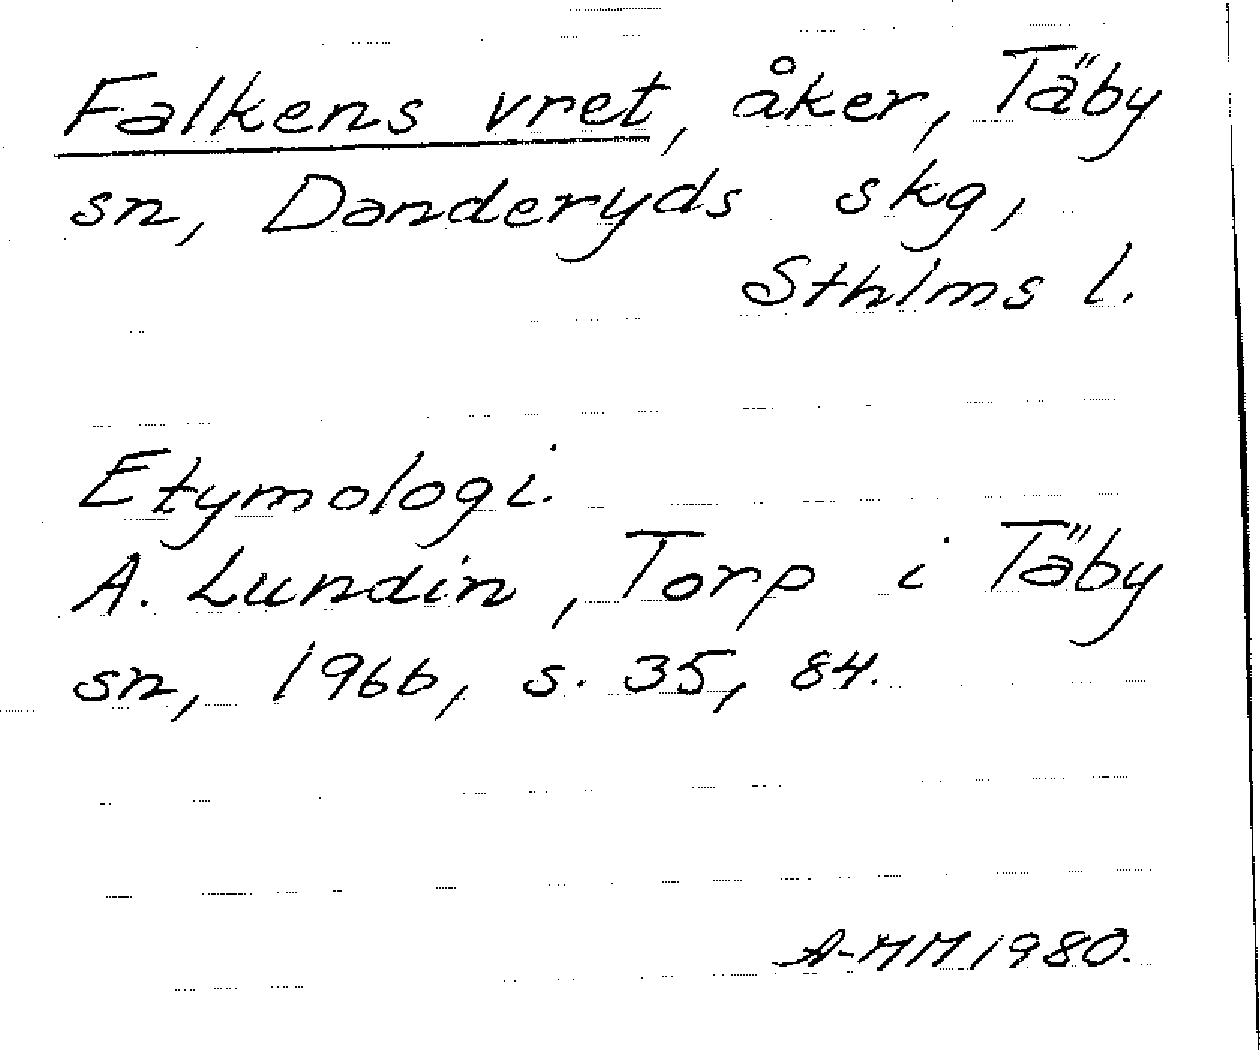 Falkens vret, åker, Täby
sn, Danderyds skg,
Sthlms l.
Etymologi.
A. Lundin, Torp i Täby
sn, 1966, s. 35, 84.
A-MM 1980.